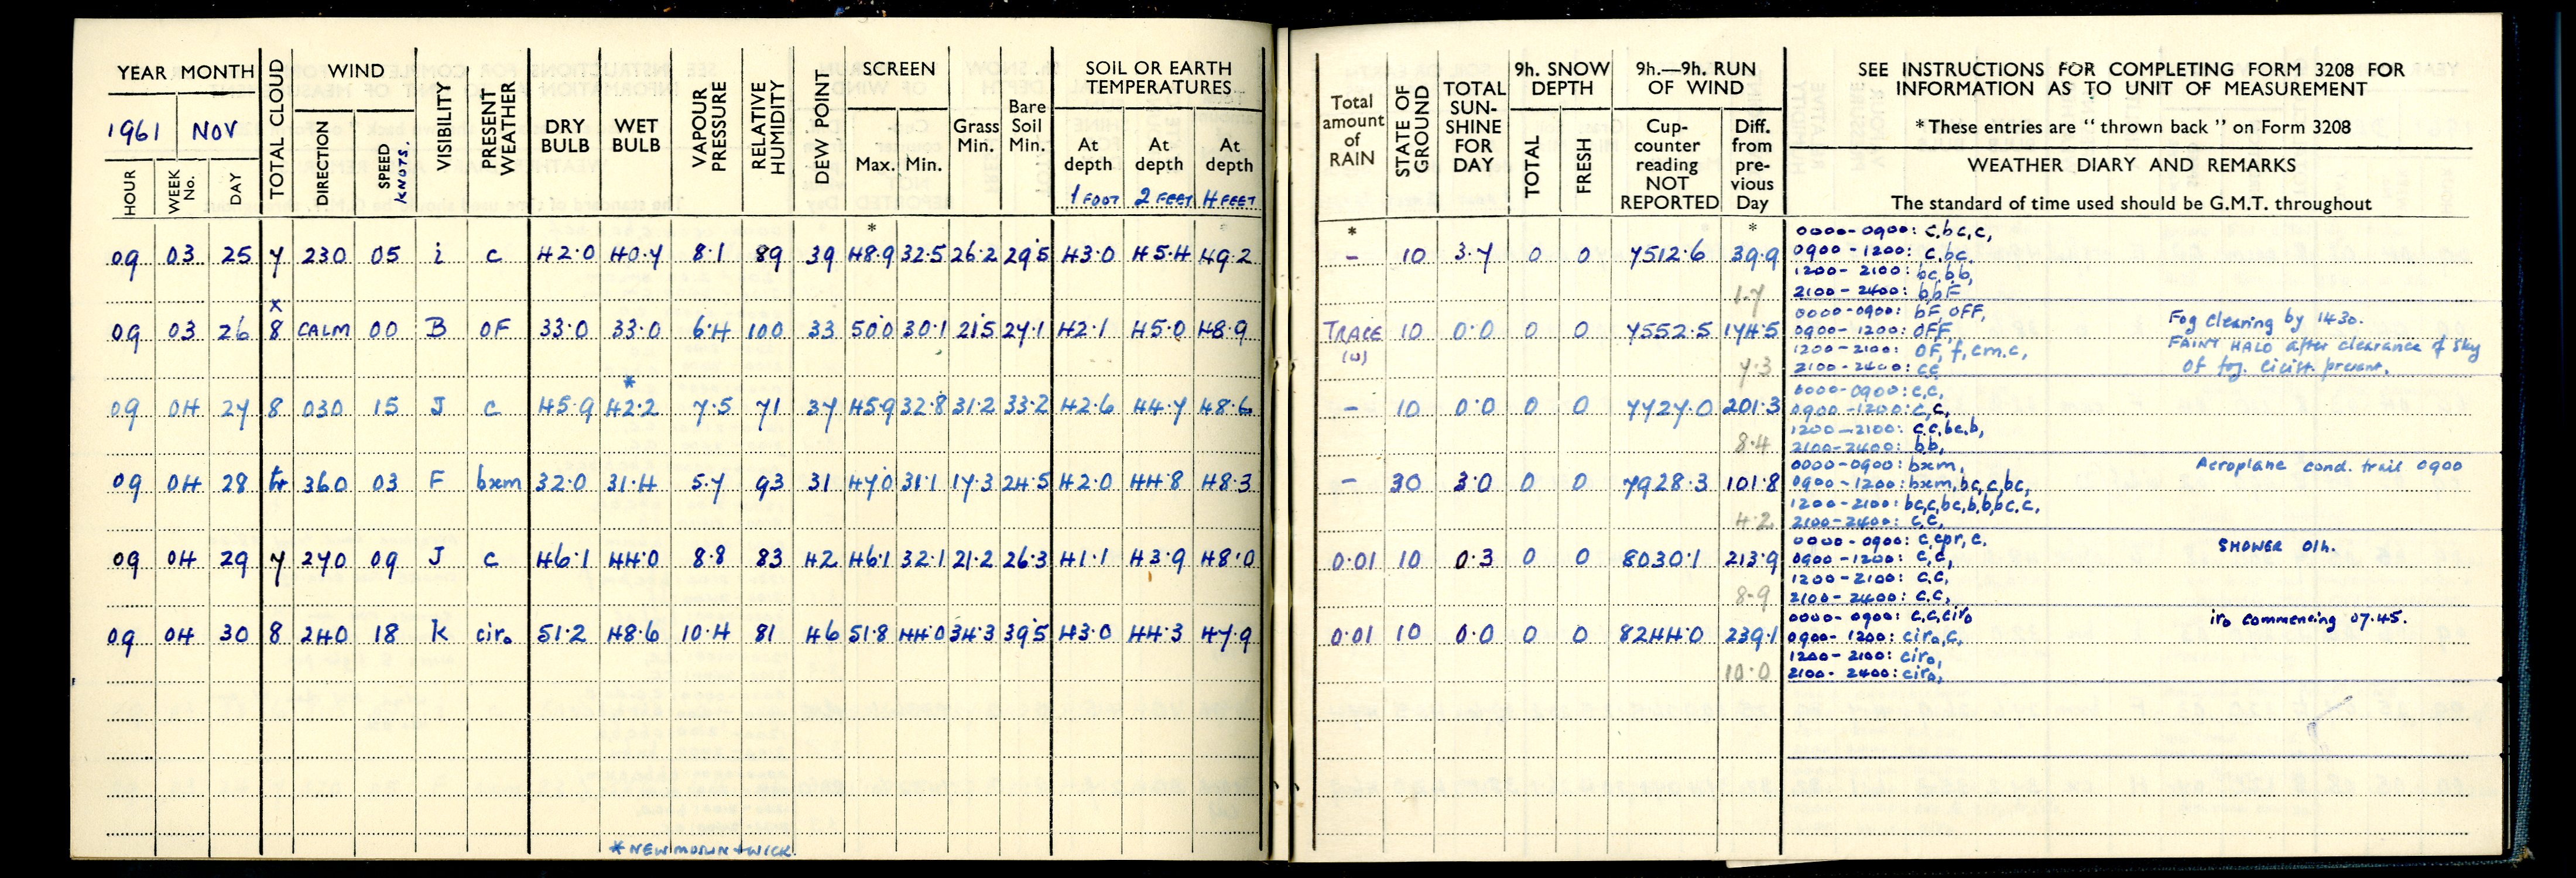 YEAR MONTH
1961 NOV
HOUR
WEEK No.
DAY
TOTAL CLOUD
WIND
DIRECTION
SPEED KNOTS.
VISIBILITY
PRESENT WEATHER
DRY BULB
WET BULB
VAPOUR PRESSURE
RELATIVE HUMIDITY
DEW POINT
SCREEN
Max. Min.
Grass Min.
Bare Soil Min.
SOIL OR EARTH TEMPERATURES
At depth 1 FOOT
At depth 2 FEET
At depth 4 FEET
Total amount of RAIN
STATE OF GROUND
TOTAL SUN-SHINE FOR DAY
9h. SNOW DEPTH
TOTAL
FRESH
9h.—9h. RUN OF WIND
Cup-counter reading NOT REPORTED
Diff. from pre-vious Day
SEE INSTRUCTIONS FOR COMPLETING FORM 3208 FOR
INFORMATION AS TO UNIT OF MEASUREMENT
*These entries are "thrown back" on Form 3208
WEATHER DIARY AND REMARKS
The standard of time used should be G.M.T. throughout
* * *
09 03 25 7 230 05 i c 42.0 40.7 8.1 89 39 48.9 32.5 26.2 29.5 43.0 45.4 49.2 - 10 3.7 0 0 7512.6 39.9
1.7
0000-0900: c,bc,c,
0900-1200: c,bc,
1200-2100: bc,bb,
2100-2400: bbF
x
09 03 26 8 CALM 00 B OF 33.0 33.0 6.4 100 33 50.0 30.1 21.5 27.1 42.1 45.0 48.9 TRACE (w) 10 0.0 0 0 7552.5 174.5
7.3
0000-0900: bF, OFF,
0900-1200: OFF
1200-2100: OF, f, cm.c,
2100-2400: cc
Fog clearing by 1430.
FAINT HALO after clearance of sky
of fog. cicist. present.
*
09 04 27 8 030 15 J c 45.9 42.2 7.5 71 37 45.9 32.8 31.2 33.2 42.6 44.7 48.6 - 10 0.0 0 0 7727.0 201.3
8.4
0000-0900: c,c,
0900-1200: c,c,
1200-2100: c,c,bc,b,
2100-2400: bb,
09 04 28 360 03 F bxm 32.0 31.4 5.7 93 31 47.0 31.1 17.3 24.5 42.0 44.8 48.3 - 30 3.0 0 0 7928.3 101.8
4.2
0000-0900: bxm,
0900-1200: bxm,bc,c,bc,
1200-2100: bc,c,bc,b,b,bc,c,
2100-2400: c,c,
Aeroplane cond. trail 0900
09 04 29 7 270 09 J c 46.1 44.0 8.8 83 42 46.1 32.1 21.2 26.3 41.1 43.9 48.0 0.01 10 0.3 0 0 8030.1 213.9
8.9
0000-0900: c,cpr,c.
0900-1200: c,c,
1200-2100: c,c,
2100-2400: c.c,
SHOWER 01h.
09 04 30 8 240 18 k ciro 51.2 48.6 10.4 81 46 51.8 44.0 34.3 39.5 43.0 44.3 47.9 0.01 10 0.0 0 0 8244.0 239.1
10.0
0000-0900: c,c,ciro
0900-1200: ciro,c,
1200-2100: ciro,
2100-2400: ciro,
iro commencing 07.45.
* NEW MUSLIN + WICK.